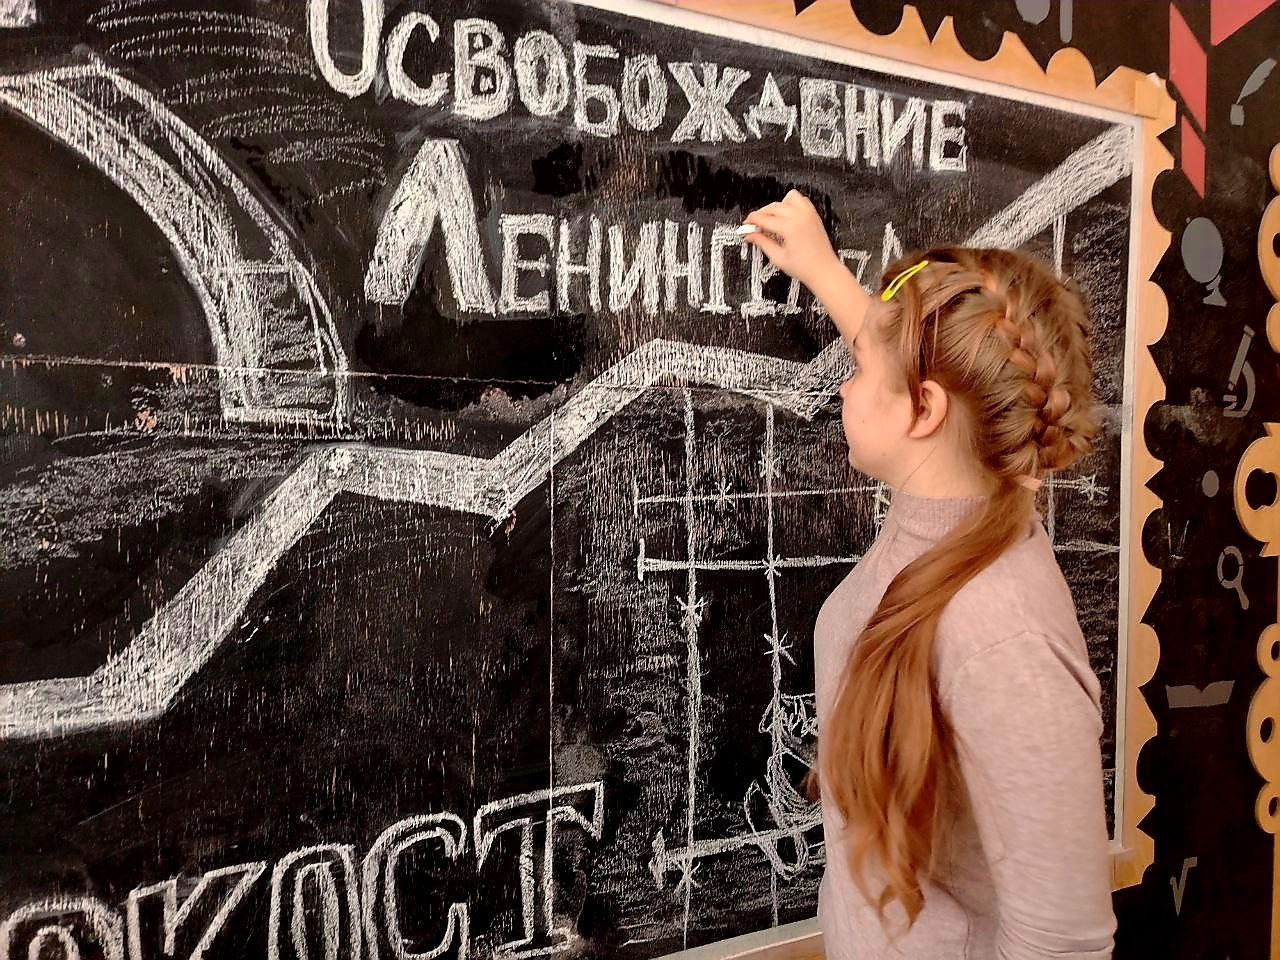 ОСВОБОЖДЕНИЕ
ЛЕНИНГРАДА
ОКОСТ